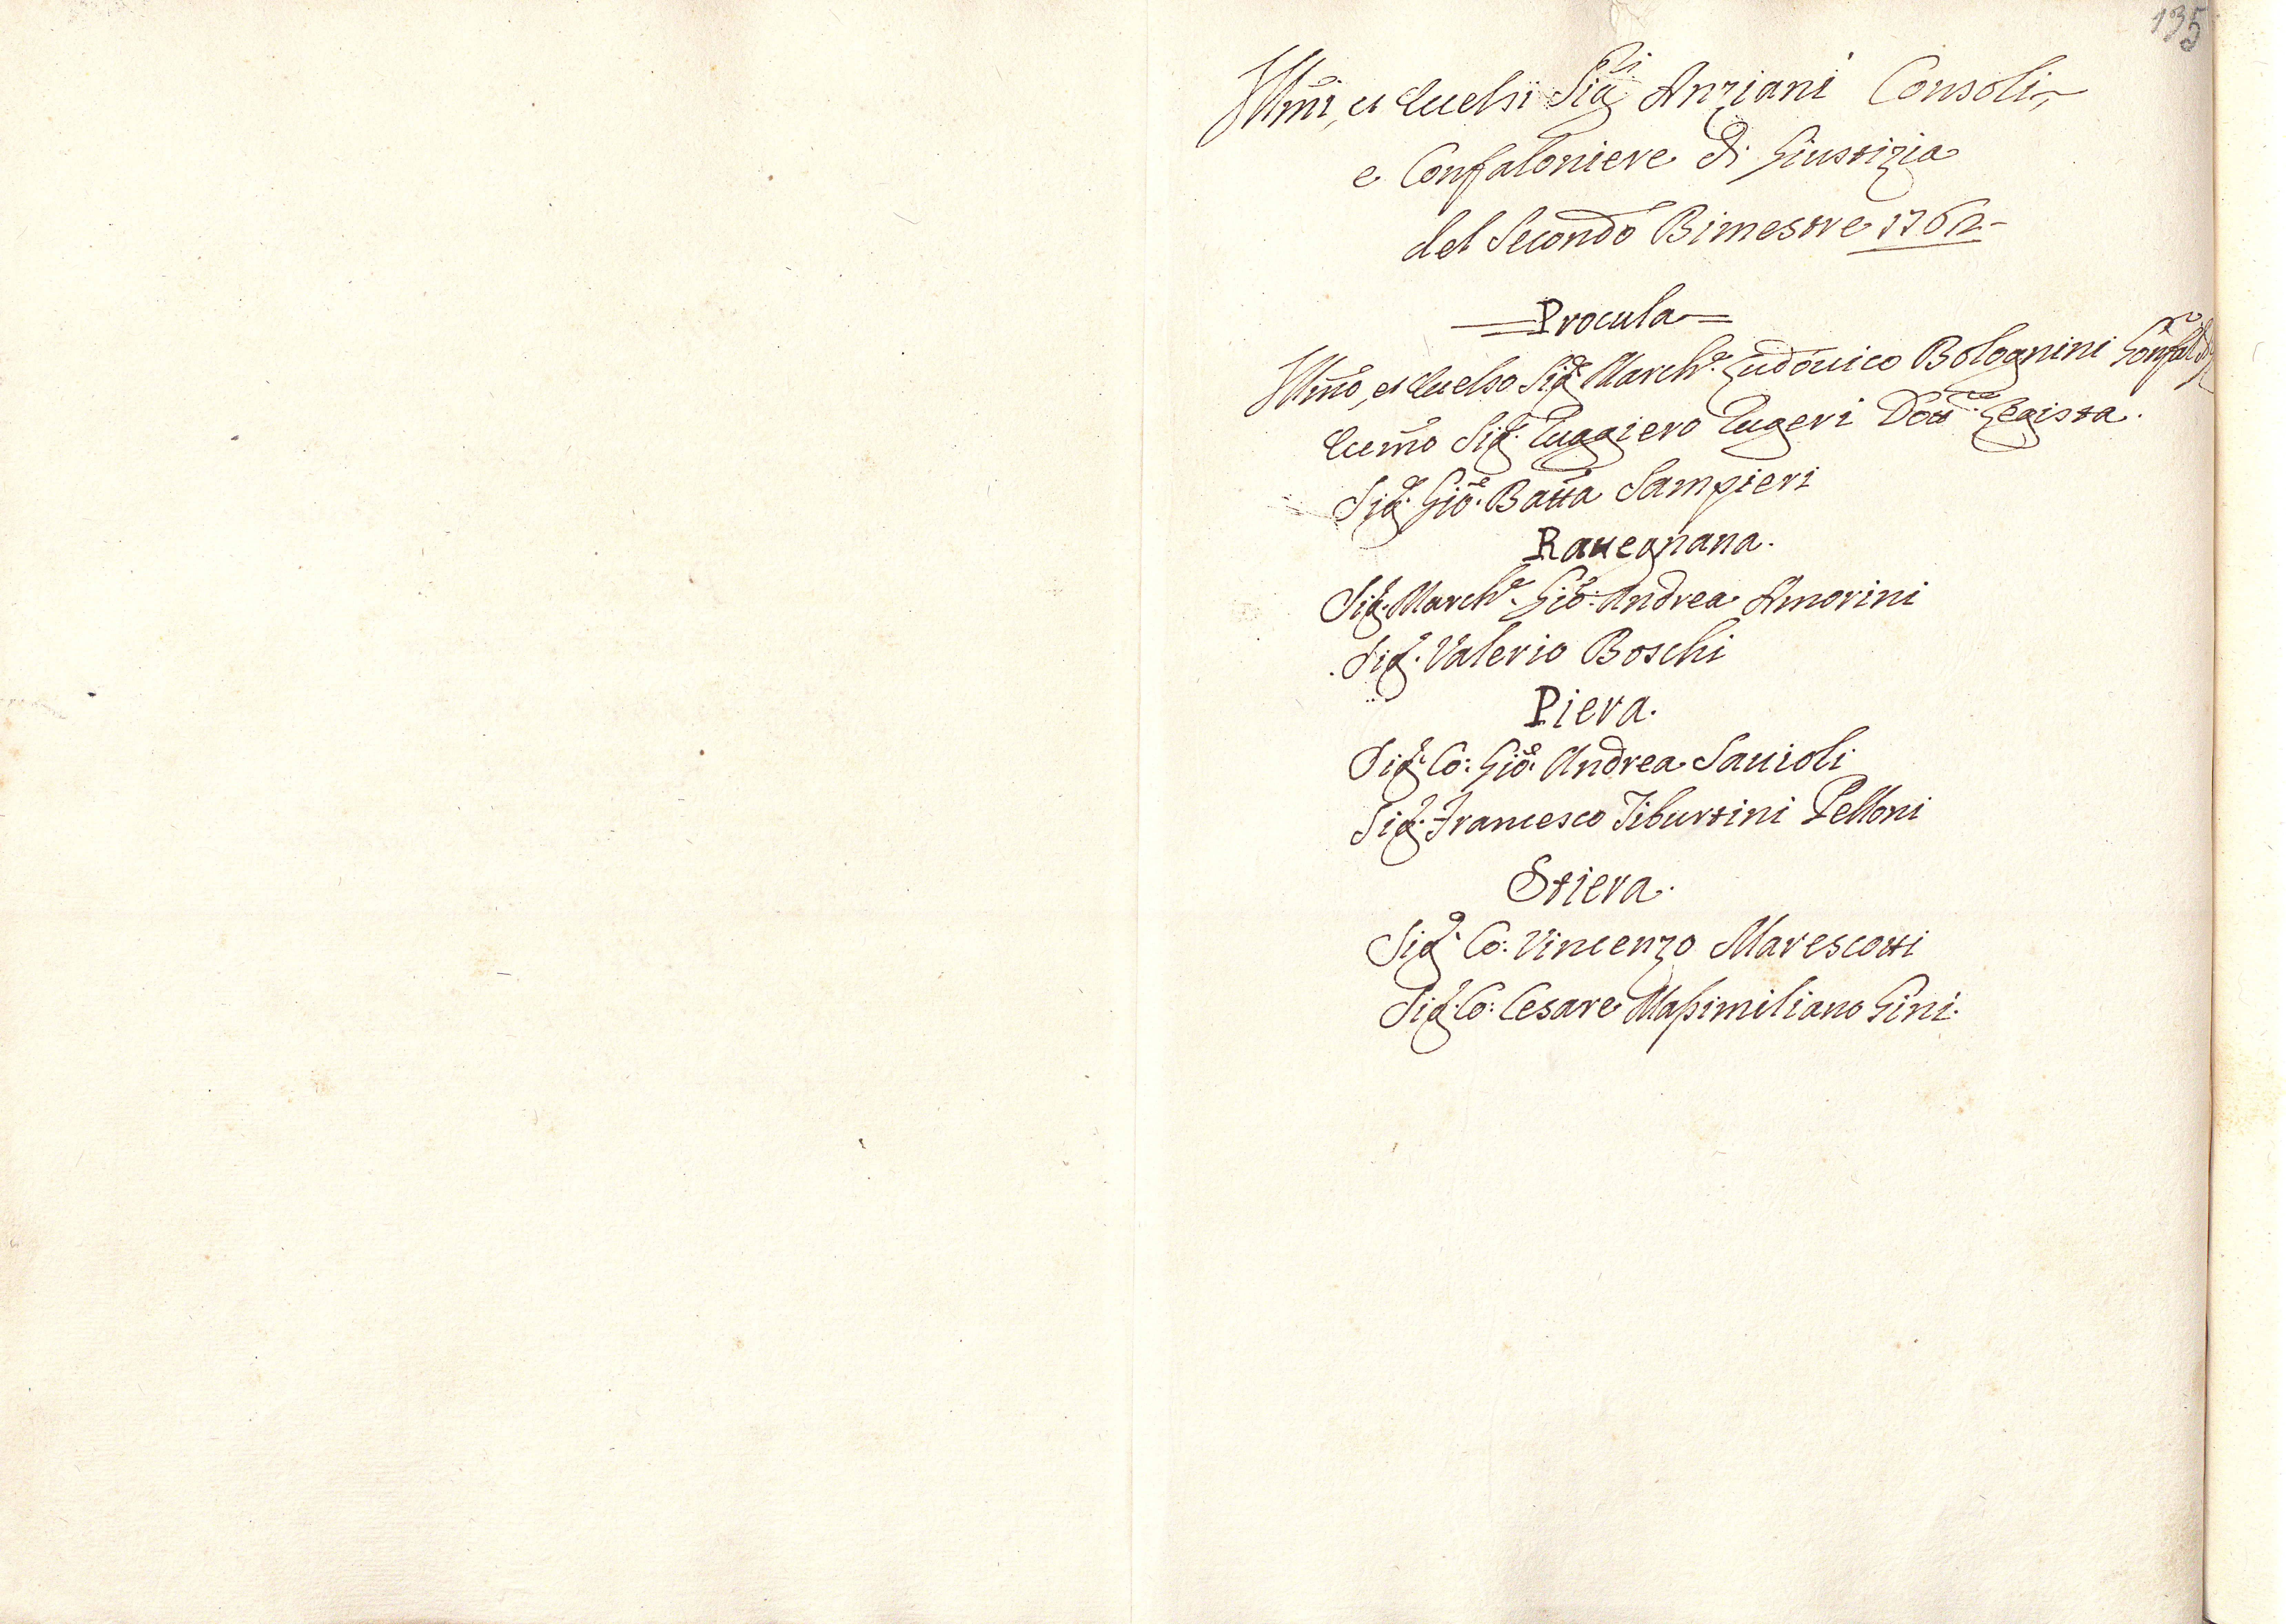 135
Illmi, et Eccelsi Sigri Anziani Consoli,
e Confaloniere di Giustizia
del Secondo Bimestre 1762
Procula
Illmo, et Eccelso Sigr. Marche. Ludouico Bolognini Confalre
Eccmo Sigr. Ruggiero Rugeri Dottre Legista.
Sigr. Gioe. Batta Sampieri
Rauegnana.
Sigr. Marche. Gioe. Andrea Amorini
Sigr. Valerio Boschi
Piera.
Sigr. Co: Gioe. Andrea Sauioli
Sigr. Francesco Tiburtini Pelloni
Stiera.
Sigr. Co: Vincenzo Marescotti
Sigr. Co: Cesare Massimiliano Gini.